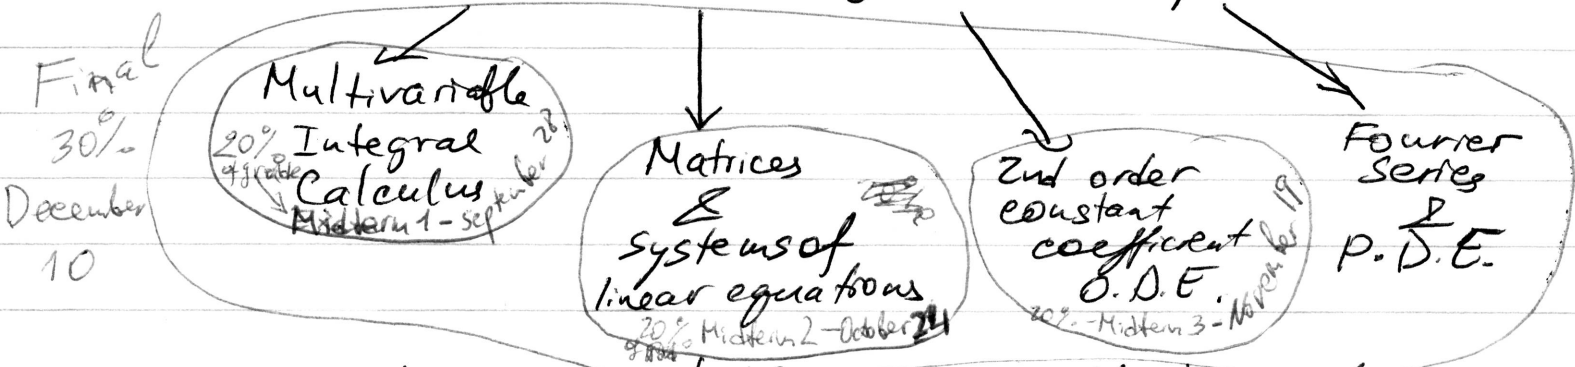 Final
30%
December
10
Multivariable
Integral
Calculus
20%
of grade
Midterm 1 - September 28.
Matrices
&
systems of
linear equations
20%
Midterm 2 - October 24
2nd order
constant
coefficient
O.D.E.
20% - Midterm 3 - November 19.
Fourier
series
&
P.D.E.